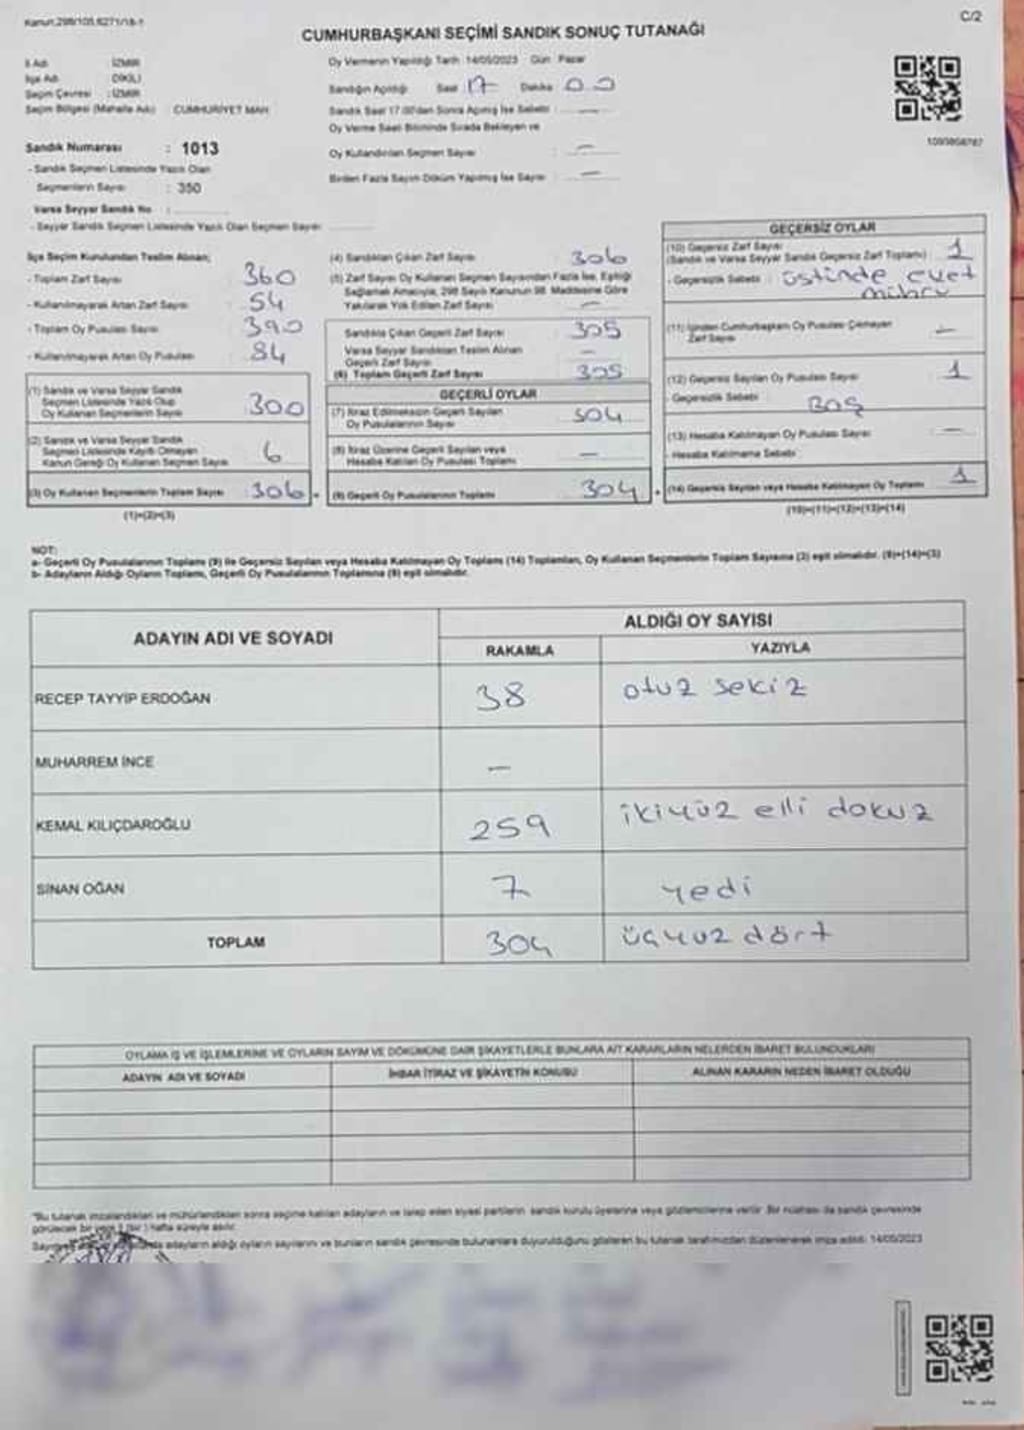 Kanun:298/105,6271/18-1
C/2
CUMHURBAŞKANI SEÇİMİ SANDIK SONUÇ TUTANAĞI
İl Adı : İZMİR
İlçe Adı : DİKİLİ
Seçim Çevresi : İZMİR
Seçim Bölgesi (Mahalle Adı) : CUMHURİYET MAH.
Sandık Numarası : 1013
- Sandık Seçmen Listesinde Yazılı Olan
Seçmenlerin Sayısı : 350
Varsa Seyyar Sandık No :
- Seyyar Sandık Seçmen Listesinde Yazılı Olan Seçmen Sayısı:
Oy Vermenin Yapıldığı Tarih: 14/05/2023 Gün: Pazar
Sandığın Açıldığı Saat : 17 Dakika : 00
Sandık Saat 17.00'den Sonra Açılmış İse Sebebi : —
Oy Verme Saati Bitiminde Sırada Bekleyen ve
Oy Kullandırılan Seçmen Sayısı : —
Birden Fazla Sayım Döküm Yapılmış İse Sayısı : —
1093858787
İlçe Seçim Kurulundan Teslim Alınan;
- Toplam Zarf Sayısı : 360
- Kullanılmayarak Artan Zarf Sayısı : 54
- Toplam Oy Pusulası Sayısı : 390
- Kullanılmayarak Artan Oy Pusulası : 84
(1) Sandık ve Varsa Seyyar Sandık
Seçmen Listesinde Yazılı Olup
Oy Kullanan Seçmenlerin Sayısı : 300
(2) Sandık ve Varsa Seyyar Sandık
Seçmen Listesinde Kayıtlı Olmayan
Kanun Gereği Oy Kullanan Seçmen Sayısı : 6
(3) Oy Kullanan Seçmenlerin Toplam Sayısı : 306
(1)+(2)=(3)
(4) Sandıktan Çıkan Zarf Sayısı : 306
(5) Zarf Sayısı Oy Kullanan Seçmen Sayısından Fazla İse, Eşitliği
Sağlamak Amacıyla, 298 Sayılı Kanunun 98. Maddesine Göre
Yakılarak Yok Edilen Zarf Sayısı : —
Sandıkta Çıkan Geçerli Zarf Sayısı : 305
Varsa Seyyar Sandıktan Teslim Alınan
Geçerli Zarf Sayısı : —
(6) Toplam Geçerli Zarf Sayısı : 305
GEÇERLİ OYLAR
(7) İtiraz Edilmeksizin Geçerli Sayılan
Oy Pusulalarının Sayısı : 304
(8) İtiraz Üzerine Geçerli Sayılan veya
Hesaba Katılan Oy Pusulası Toplamı : —
(9) Geçerli Oy Pusulalarının Toplamı : 304
GEÇERSİZ OYLAR
(10) Geçersiz Zarf Sayısı
(Sandık ve Varsa Seyyar Sandık Geçersiz Zarf Toplamı) : 1
- Geçersizlik Sebebi : üstünde evet
mührü
(11) İçinden Cumhurbaşkanı Oy Pusulası Çıkmayan
Zarf Sayısı : —
(12) Geçersiz Sayılan Oy Pusulası Sayısı : 1
- Geçersizlik Sebebi : Boş
(13) Hesaba Katılmayan Oy Pusulası Sayısı : —
- Hesaba Katılmama Sebebi :
(14) Geçersiz Sayılan veya Hesaba Katılmayan Oy Toplamı : 1
(10)+(11)+(12)+(13)=(14)
NOT:
a- Geçerli Oy Pusulalarının Toplamı (9) ile Geçersiz Sayılan veya Hesaba Katılmayan Oy Toplamı (14) Toplamları, Oy Kullanan Seçmenlerin Toplam Sayısına (3) eşit olmalıdır. (9)+(14)=(3)
b- Adayların Aldığı Oyların Toplamı, Geçerli Oy Pusulalarının Toplamına (9) eşit olmalıdır.
ADAYIN ADI VE SOYADI
ALDIĞI OY SAYISI
RAKAMLA YAZIYLA
RECEP TAYYİP ERDOĞAN 38 otuz sekiz
MUHARREM İNCE —
KEMAL KILIÇDAROĞLU 259 ikiyüz elli dokuz
SİNAN OĞAN 7 yedi
TOPLAM 304 üçyüz dört
OYLAMA İŞ VE İŞLEMLERİNE VE OYLARIN SAYIM VE DÖKÜMÜNE DAİR ŞİKAYETLERLE BUNLARA AİT KARARLARIN NELERDEN İBARET BULUNDUKLARI
ADAYIN ADI VE SOYADI İHBAR İTİRAZ VE ŞİKAYETİN KONUSU ALINAN KARARIN NEDEN İBARET OLDUĞU
"Bu tutanak imzalandıktan ve mühürlendikten sonra seçime katılan adayların ve talep eden siyasi partilerin sandık kurulu üyelerine veya gözlemcilerine verilir. Bir nüshası da sandık çevresinde
görülecek bir yere 1 (bir) hafta süreyle asılır.
adayların aldığı oyların sayılarını ve bunların sandık çevresinde bulunanlara duyurulduğunu gösteren bu tutanak tarafımızdan düzenlenerek imza edildi. 14/05/2023